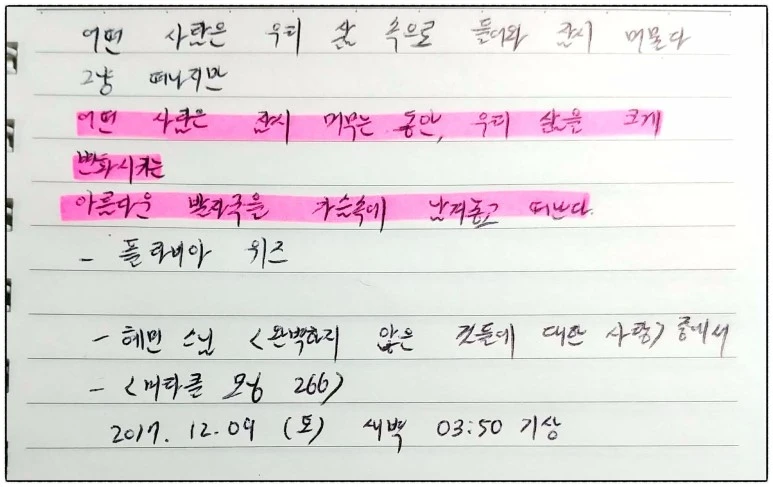 어떤 사람은 우리 삶 속으로 들어와 잠시 머물다
그냥 떠나지만
어떤 사람은 잠시 머무는 동안, 우리 삶을 크게
변화시키는
아름다운 발자국을 가슴속에 남겨놓고 떠난다.
- 플라비아 위즈
- 혜민 스님 <완벽하지 않은 것들에 대한 사랑> 중에서
- <미라클 모닝 266>
2017. 12. 09 (토) 새벽 03:50 기상